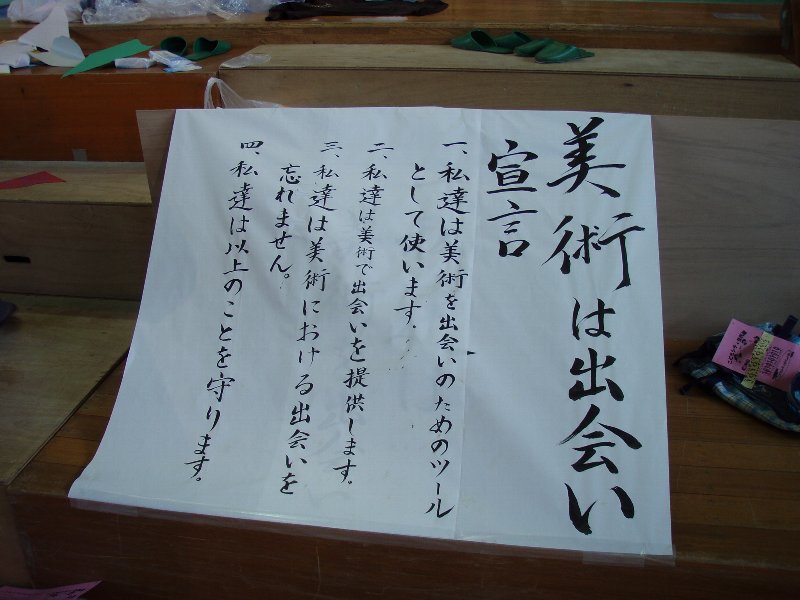 美術は出会い
宣言
一、私達は美術を出会いのためのツール
として使います。
二、私達は美術で出会いを提供します。
三、私達は美術における出会いを
忘れません。
四、私達は以上のことを守ります。